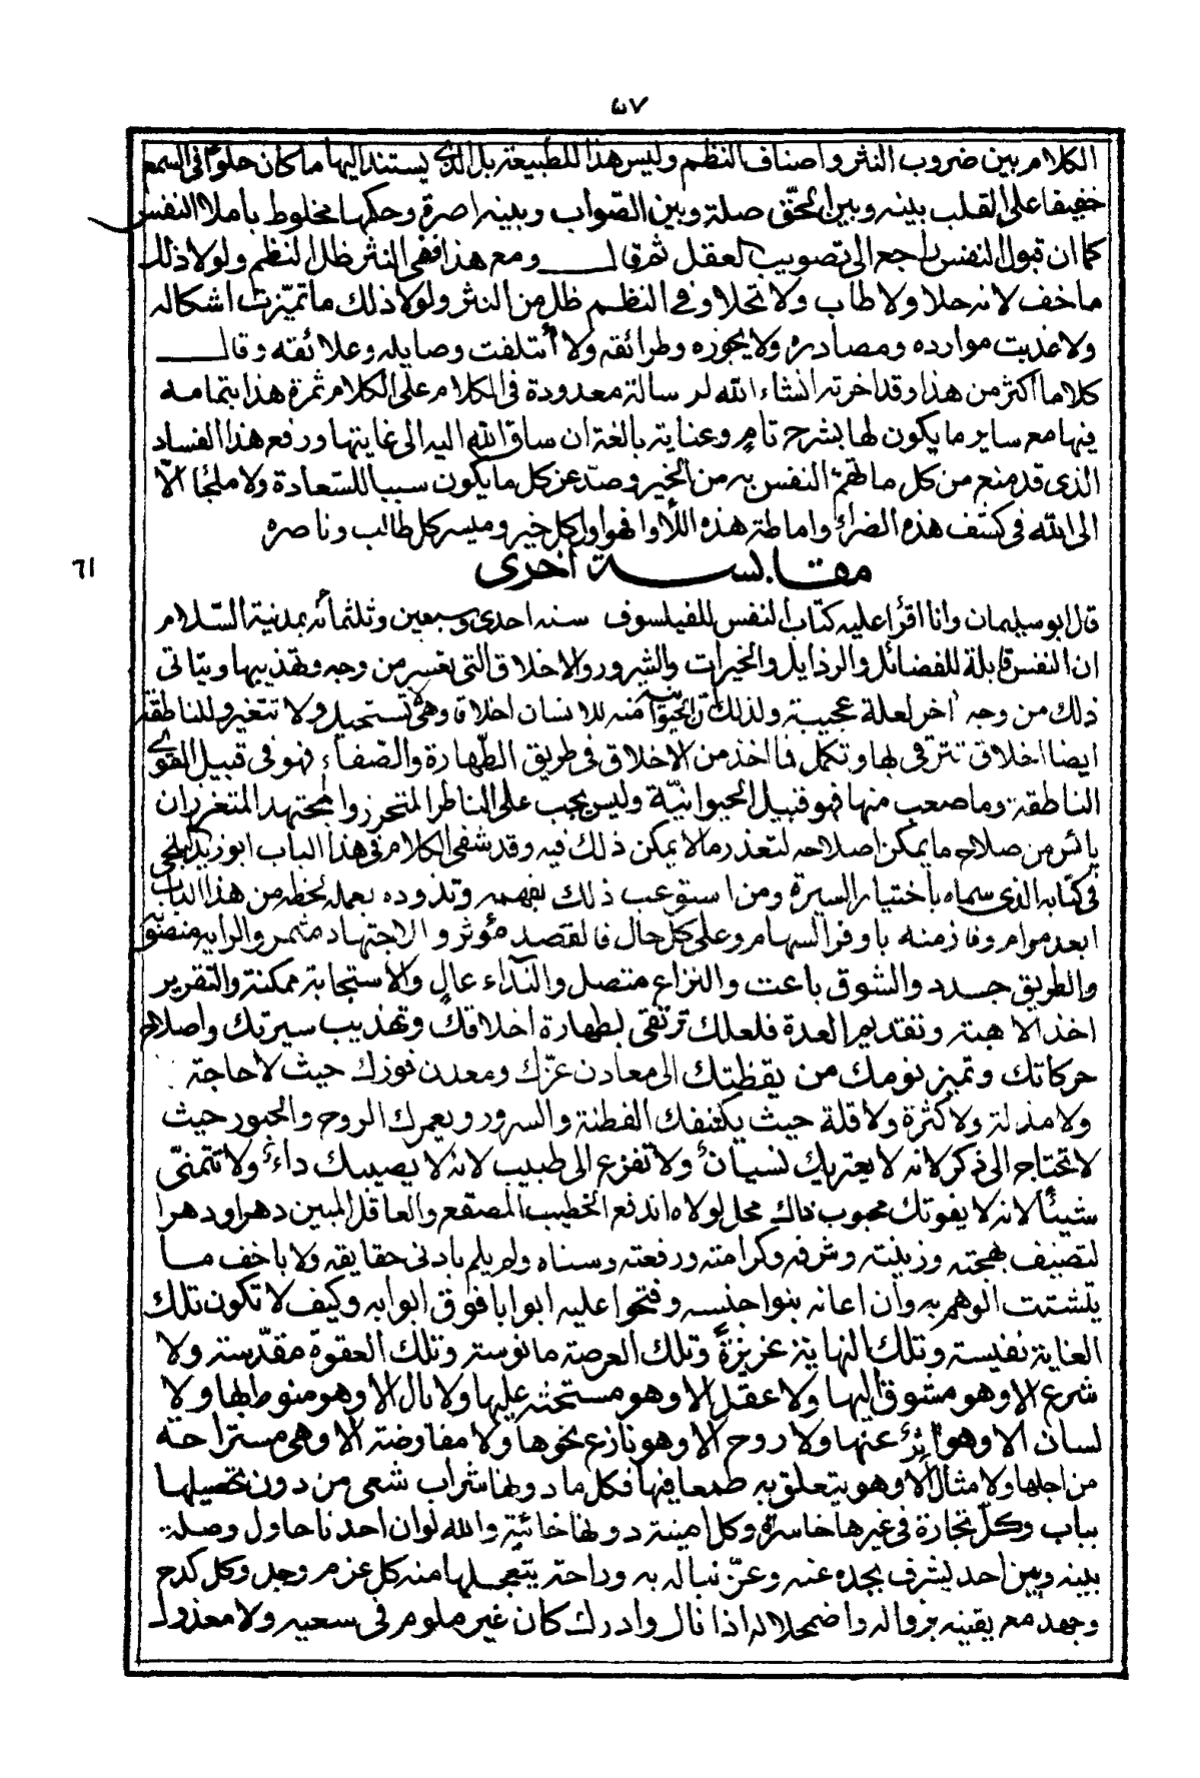 ٥٧
الكلام بين ضروب النثر واصناف النظم وليس هذا للطبيعة بل الذى يستند اليها ما كان حلوًا فى السمع
خفيفا على القلب بينه وبين الحقّ صلة وبين الصّواب وبينه اصرة وحكمها مخلوط باملا النفس
كما ان قبول النفس راجع الى تصويب العقل ثم قال ومع هذا ففى النثر ظل النظم ولولا ذلك
ما خف لانه حلا ولا طاب ولا تحلا وفى النظم ظل من النثر ولولا ذلك ما تميّزت اشكاله
ولا عذبت موارده ومصادره ولا بحوره وطرائقه ولا أئتلفت وصايله وعلائقه وقال
كلاما اكثر من هذا وقد اخرته انشاء الله لرسالة معدودة فى الكلام على الكلام ثمرة هذا بتمامه
فيها مع ساير ما يكون لها بشرح تام وعناية بالغة ان ساق الله اليه الى غايتها ورفع هذا الفساد
الذى قد منع من كل ما تهمّ النفس به من الخير وصدّ عن كل ما يكون سببا للسّعادة ولا ملجأ الّا
الى الله فى كشف هذه الضرّاء واماطة هذه اللأوا فهو اول كل خير وميسر كل طالب وناصره
مقابسة اخرى
٦١
قال ابو سليمان وانا اقرأ عليه كتاب النفس للفيلسوف سنه احدى وسبعين وثلثمائه بمدينة السّلام
ان النفس قابلة للفضائل والرذايل والخيرات والشرور والاخلاق التى تعسر من وجه وتهذيبها ويتاتى
ذلك من وجه اخر لعلة عجيبة ولذلك ان الحيوانيه منه للانسان اخلاق وهى تستحيل ولا تتغير وللناطقة
ايضا اخلاق تترقى بها وتكمل فما اخذ من الاخلاق فى طريق الطّهارة والصّفاء فهو فى قبيل القوى
الناطقة وما صعب منها فهو قبيل الحيوانيّة وليس يجب على الناظر المتحرز والمجتهد المتغزر ان
يائس من صلاح ما يمكن اصلاحه لتعذر ما لا يمكن ذلك فيه وقد شفى الكلام فى هذا الباب ابو زيد البلخى
فى كتابه الذى سماه باختيار السيرة ومن استوعب ذلك بفهمه وتزوده بعمله لحظه من هذا الباب
ابعد مرام وفاز منه باوفر السهام وعلى كل حال فالقصد مؤثر والاجتهاد مثمر والراية منصوبة
والطريق جدد والشوق باعث والنزاع متصل والنّداء عال والاستجابة ممكنة والتقرير
اخذ الاهبة وتقديم العدة فلعلك ترتقى لطهارة اخلاقك وتهذيب سيرتك واصلاح
حركاتك وتميز نومك من يقظتك الى معادن عزّك ومعدن فوزك حيث لا حاجة
ولا مذلة ولا كثرة ولا قلة حيث يكتنفك الفطنة والسرور ويعمرك الروح والحبور حيث
لا تحتاج الى ذكر لانه لا يعتريك نسيان ولا تفزع الى طبيب لانه لا يصيبك داء ولا تتمنّى
شيئًا لانه لا يفوتك محبوب ذاك محل لولاه اندفع الخطيب المصقع والعاقل المبين دهرا ودهرا
لتصنيف بهجته وزينته وشرفه وكرامته ورفعته وسناه ولم يلم بادنى حقايقه ولا باخف ما
يتشتت الوهم به وان اعانه بنوا جنسه وفتحوا عليه ابوابا فوق ابوابه وكيف لا تكون تلك
الغاية نفيسة وتلك النهاية عزيزة وتلك العرصة مانوسة وتلك العقوة مقدّسة ولا
شرع الا وهو مشوق اليها ولا عقل الا وهو مستحث عليها ولا بال الا وهو منوط بها ولا
لسان الا وهو اثر عنها ولا روح الا وهو نازع نحوها ولا مفاوضة الا وهى مستراحة
من اجلها ولا مثال الا وهو يتعلق به طمعا فيها فكل ما دونها شراب شعى من دون تحصيلها
بباب وكلّ تجارة فى غيرها خاسرة وكل امنية دونها خائبة والله لو ان احدنا حاول وصلة
بينه وبين احد ليشرف بجده عنه وعزّ نباله به وراحة يتعجلها منه كل عزم وجل وكل كدح
وجهد مع يقينه بزواله واضمحلاله اذا نال وادرك كان غير ملوم فى سعيه ولا معذول